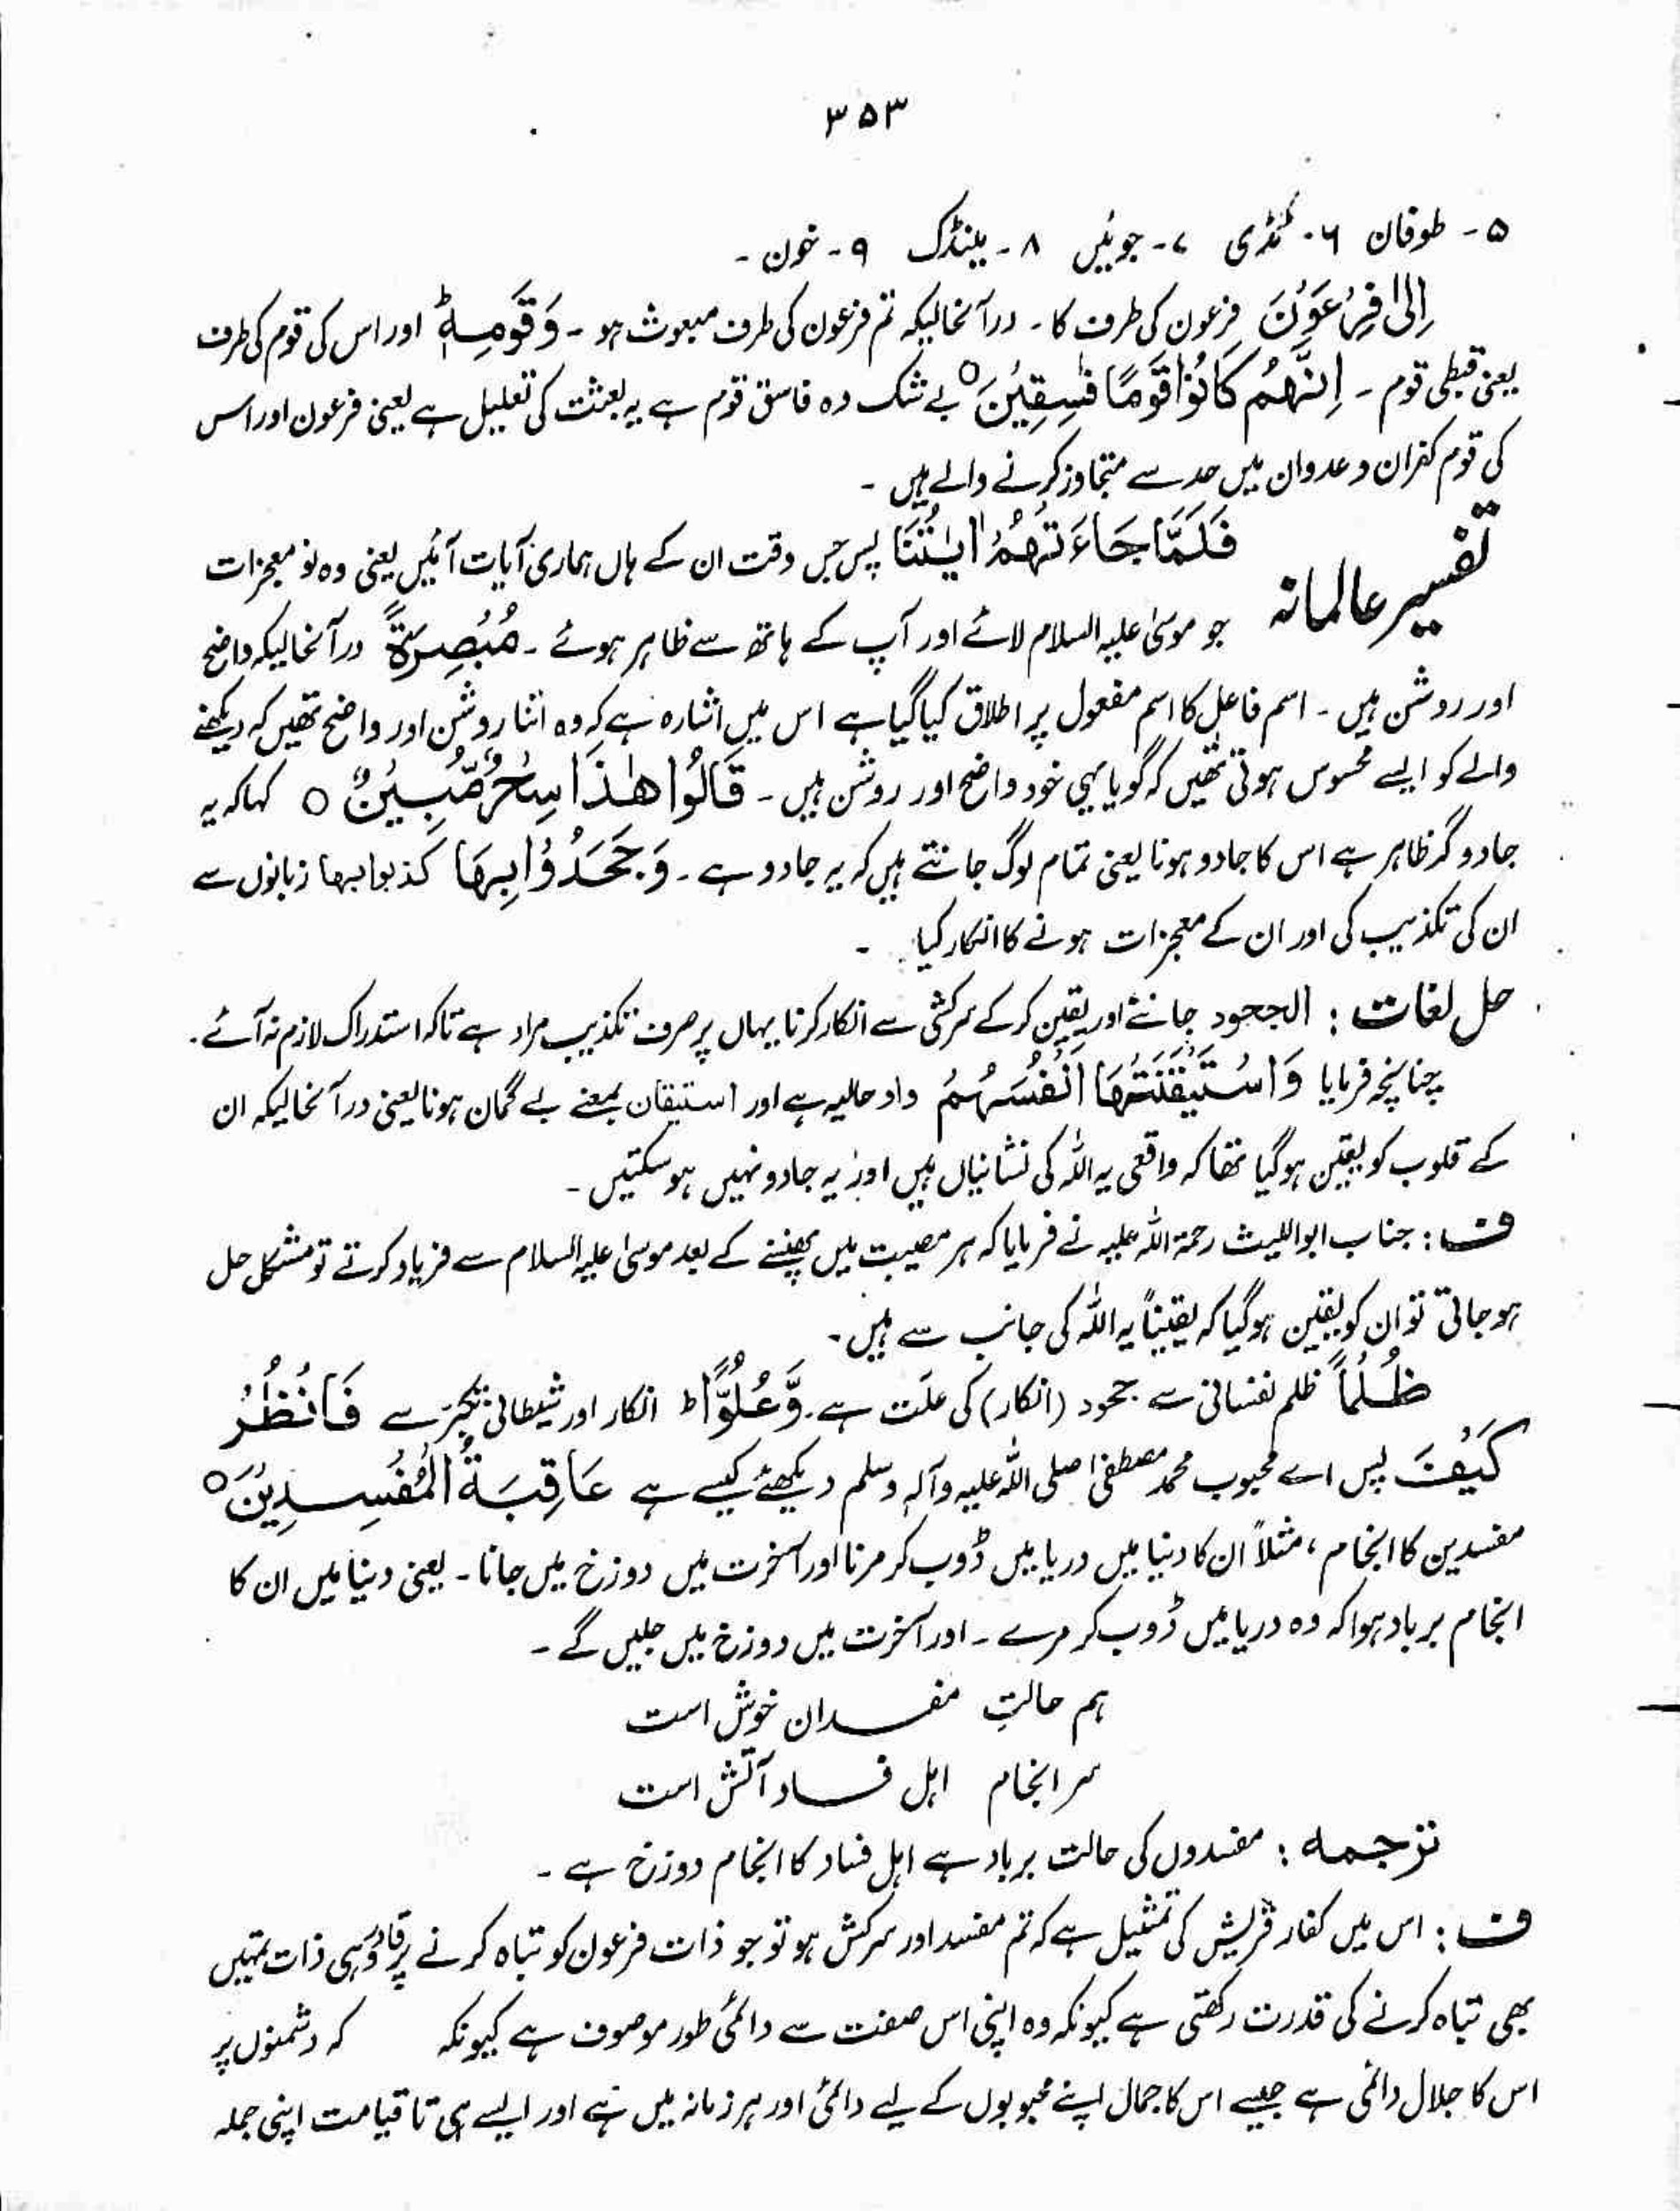 ۳۵۳
۵ - طوفان ۶ - ٹڈی ۷ - جوئیں ۸ - مینڈک ۹ - خون -
اِلٰی فِرْعَوْنَ فرعون کی طرف کا - درآنحالیکہ تم فرعون کی طرف مبعوث ہو - وَقَوْمِہٖ ؕ اور اس کی قوم کی طرف
یعنی قبطی قوم - اِنَّہُمْ کَانُوْا قَوْمًا فٰسِقِیْنَ ○ بے شک وہ فاسق قوم ہے یہ بعثت کی تعلیل ہے یعنی فرعون اور اس
کی قوم کفران و عدوان میں حد سے متجاوز کرنے والے ہیں -
تفسیر عالمانہ فَلَمَّا جَآءَتْہُمْ اٰیٰتُنَا پس جس وقت ان کے ہاں ہماری آیات آئیں یعنی وہ نو معجزات
جو موسیٰ علیہ السلام لائے اور آپ کے ہاتھ سے ظاہر ہوئے - مُبْصِرَۃً درآنحالیکہ واضح
اور روشن ہیں - اسم فاعل کا اسم مفعول پر اطلاق کیا گیا ہے اس میں اشارہ ہے کہ وہ اتنا روشن اور واضح تھیں کہ دیکھنے
والے کو ایسے محسوس ہوتی تھیں کہ گویا یہی خود واضح اور روشن ہیں - قَالُوْا ھٰذَا سِحْرٌ مُّبِیْنٌ ○ کہا کہ یہ
جادوگر ظاہر ہے اس کا جادو ہونا یعنی تمام لوگ جانتے ہیں کہ یہ جادو ہے - وَجَحَدُوْا بِہَا کذبوا بہا زبانوں سے
ان کی تکذیب کی اور ان کے معجزات ہونے کا انکار کیا -
حل لغات : الجحود جاننے اور یقین کر کے سرکشی سے انکار کرنا یہاں پر صرف تکذیب مراد ہے تاکہ استدراک لازم نہ آئے -
چنانچہ فرمایا وَاسْتَیْقَنَتْہَا اَنْفُسُہُمْ واو حالیہ ہے اور استیقان بمعنے بے گمان ہونا یعنی درآنحالیکہ ان
کے قلوب کو یقین ہوگیا تھا کہ واقعی یہ اللہ کی نشانیاں ہیں اور یہ جادو نہیں ہو سکتیں -
ف : جناب ابواللیث رحمۃ اللہ علیہ نے فرمایا کہ ہر مصیبت میں پھنسنے کے بعد موسیٰ علیہ السلام سے فریاد کرتے تو مشکل حل
ہو جاتی تو ان کو یقین ہوگیا کہ یقیناً یہ اللہ کی جانب سے ہیں -
ظُلْمًا ظلم نفسانی سے جحود (انکار) کی علت ہے - وَّعُلُوًّا ؕ انکار اور شیطانی تکبر سے فَانْظُرْ
کَیْفَ پس اے محبوب محمد مصطفیٰ صلی اللہ علیہ وآلہ وسلم دیکھئے کیسے ہے عَاقِبَۃُ الْمُفْسِدِیْنَ ○
مفسدین کا انجام ، مثلاً ان کا دنیا میں دریا میں ڈوب کر مرنا اور آخرت میں دوزخ میں جانا - یعنی دنیا میں ان کا
انجام برباد ہوا کہ وہ دریا میں ڈوب کر مرے - اور آخرت میں دوزخ میں جلیں گے -
ہم حالتِ مفسدان خوش است
سر انجام اہل فساد آتش است
ترجمہ : مفسدوں کی حالت برباد ہے اہل فساد کا انجام دوزخ ہے -
ف : اس میں کفار قریش کی تمثیل ہے کہ تم مفسد اور سرکش ہو تو جو ذات فرعون کو تباہ کرنے پر قادر وہی ذات تمہیں
بھی تباہ کرنے کی قدرت رکھتی ہے کیونکہ وہ اپنی اس صفت سے دائمی طور موصوف ہے کیونکہ کہ دشمنوں پر
اس کا جلال دائمی ہے جیسے اس کا جمال اپنے محبوبوں کے لیے دائمی اور ہر زمانہ میں ہے اور ایسے ہی تا قیامت اپنی جملہ